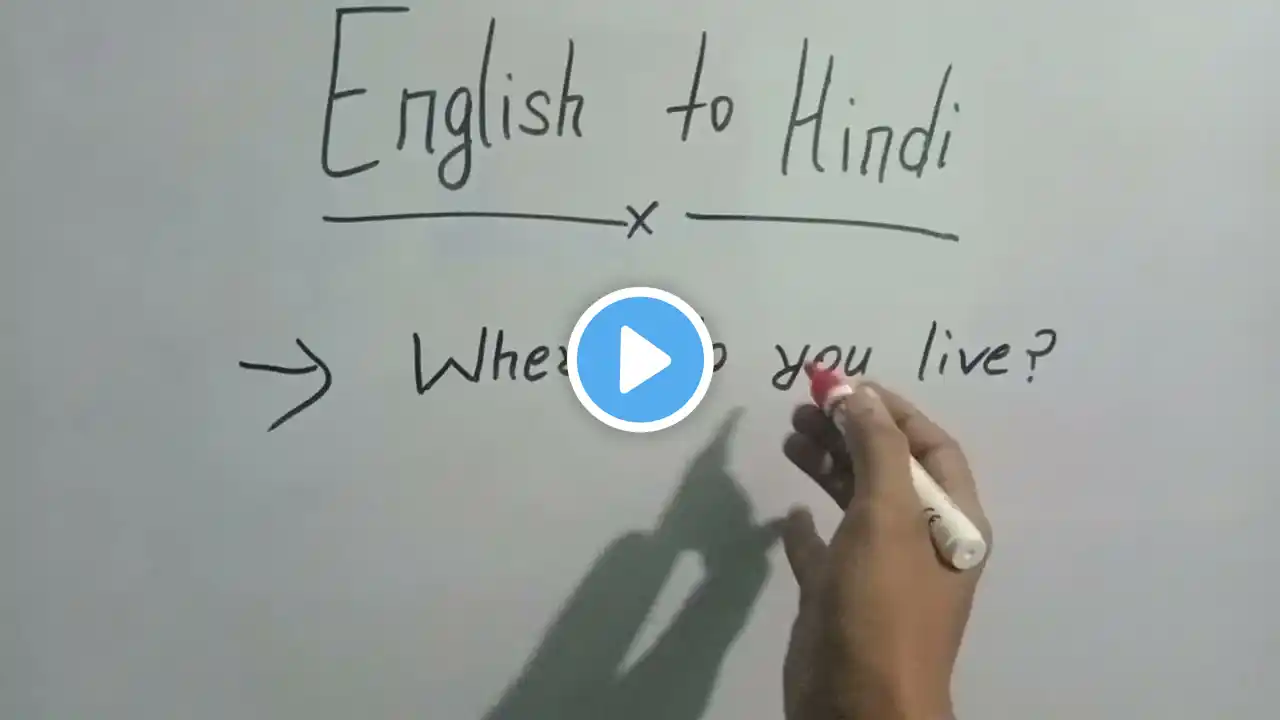 English to Hindi
x
→ Where do you live?